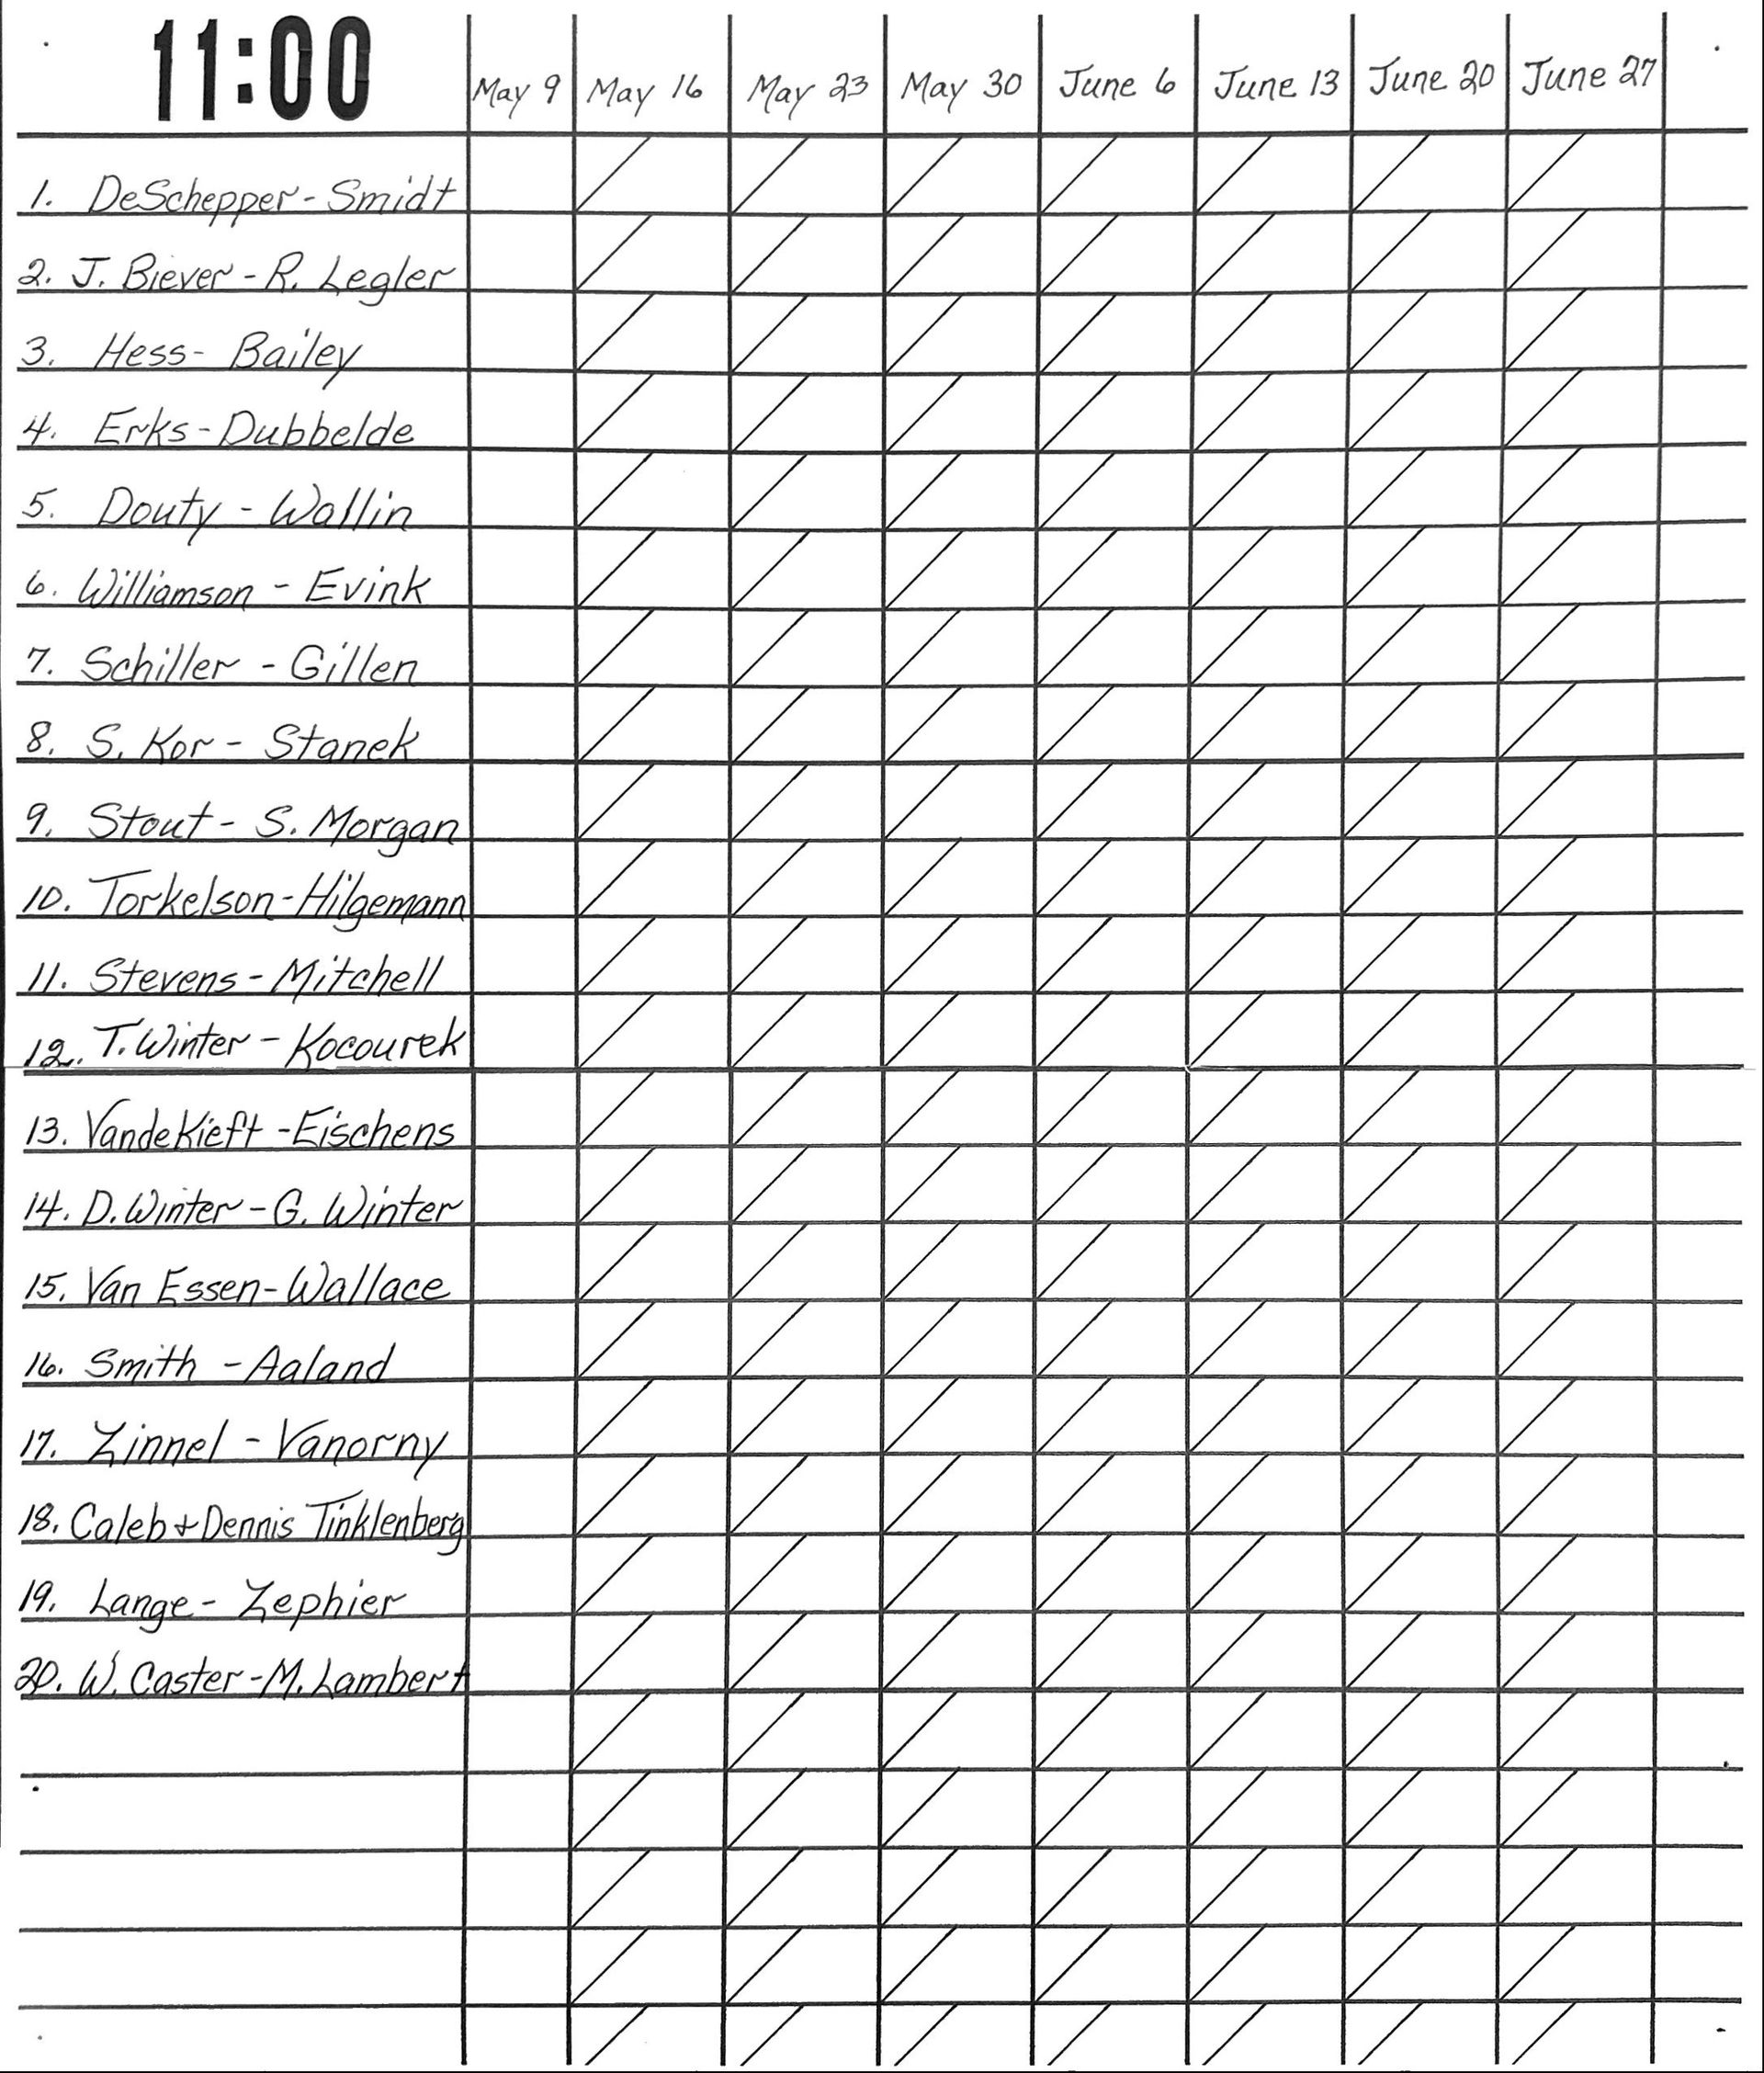 11:00 May 9 May 16 May 23 May 30 June 6 June 13 June 20 June 27
1. DeSchepper - Smidt
2. J. Biever - R. Legler
3. Hess - Bailey
4. Erks - Dubbelde
5. Douty - Wallin
6. Williamson - Evink
7. Schiller - Gillen
8. S. Kor - Stanek
9. Stout - S. Morgan
10. Torkelson - Hilgemann
11. Stevens - Mitchell
12. T. Winter - Kocourek
13. VandeKieft - Eischens
14. D. Winter - G. Winter
15. Van Essen - Wallace
16. Smith - Aaland
17. Zinnel - Vanorny
18. Caleb + Dennis Tinklenberg
19. Lange - Zephier
20. W. Caster - M. Lambert